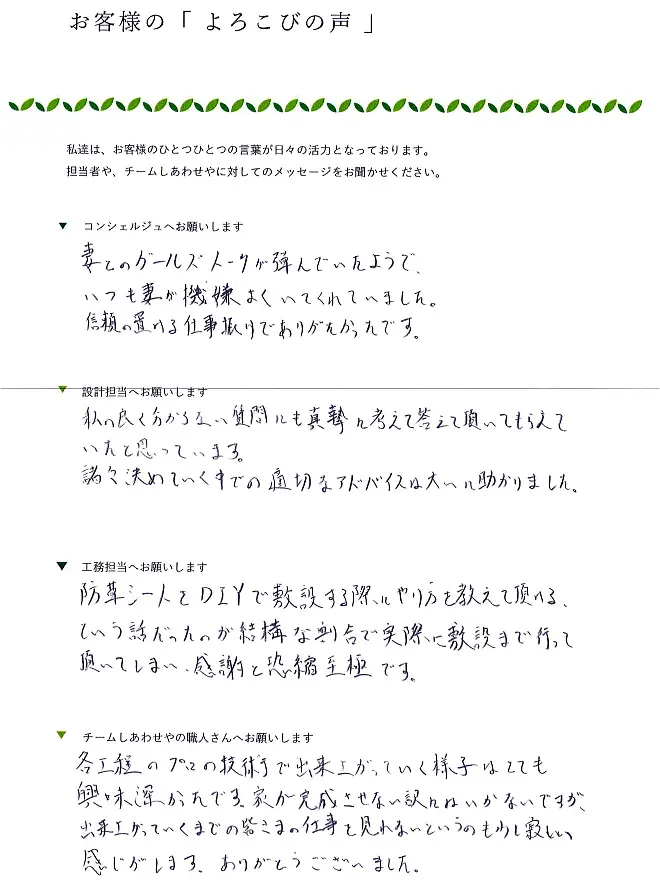 お客様の「よろこびの声」
私達は、お客様のひとつひとつの言葉が日々の活力となっております。
担当者や、チームしあわせやに対してのメッセージをお聞かせください。
▼ コンシェルジュへお願いします
妻とのガールズトークが弾んでいたようで、
いつも妻が機嫌よくいてくれていました。
信頼の置ける仕事振りでありがたかったです。
▼ 設計担当へお願いします
私の良く分からない質問にも真摯に考えて答えて頂いてもらえて
いたと思っています。
諸々決めていく中での適切なアドバイスは大いに助かりました。
▼ 工務担当へお願いします
防草シートをDIYで敷設する際にやり方を教えて頂ける、
という話だったのが結構な割合で実際に敷設まで行って
頂いてしまい、感謝と恐縮至極です。
▼ チームしあわせやの職人さんへお願いします
各工程のプロの技術で出来上がっていく様子はとても
興味深かったです。家が完成させない訳にはいかないですが、
出来上がっていくまでの皆さまの仕事を見れないというのも少し寂しい
感じがします。ありがとうございました。